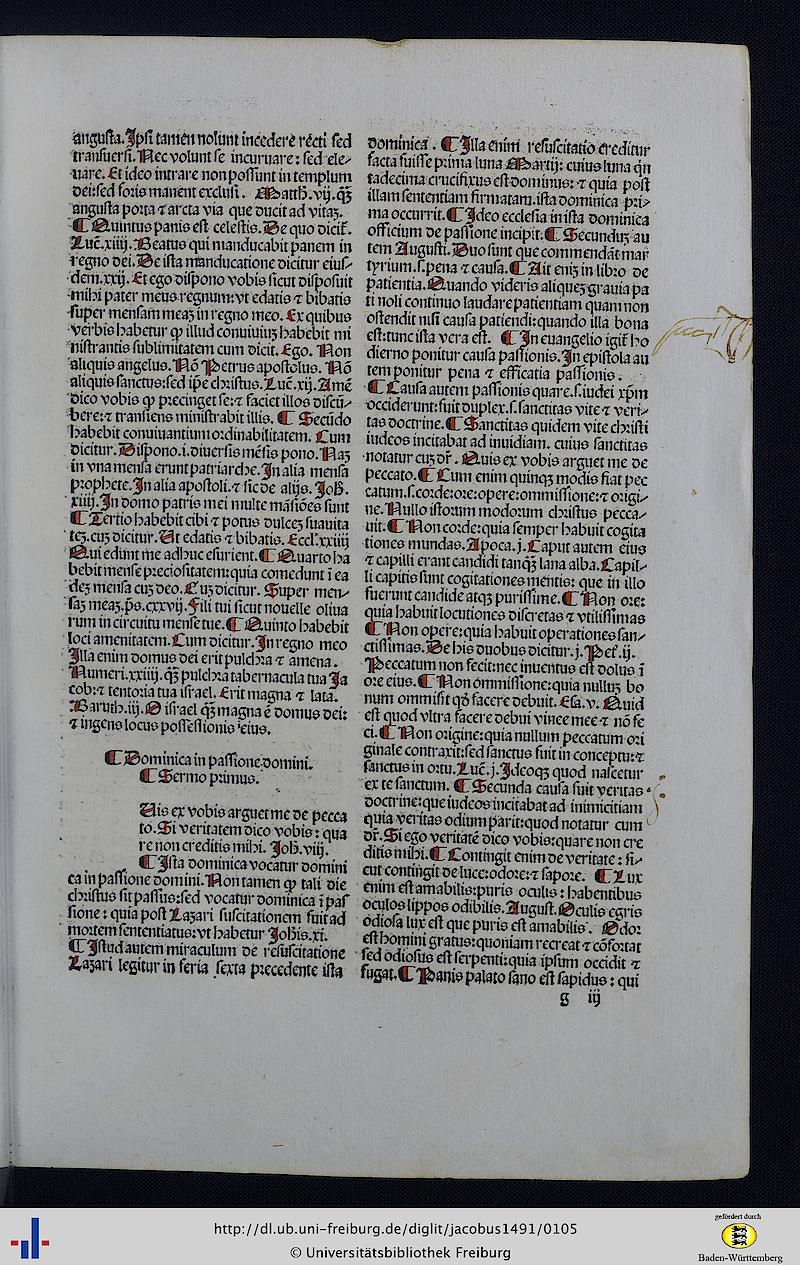 angusta. Ipsi tamen nolunt incedere recti sed
transuersi. Nec volunt se incuruare: sed ele⸗
uare. Et ideo intrare non possunt in templum
dei: sed foris manent exclusi. Matth. vij. q̄ꝫ
angusta porta ⁊ arcta via que ducit ad vitaꝫ.
¶ Quintus panis est celestis. De quo dicit̄.
Luc̄. xiiij. Beatus qui manducabit panem in
regno dei. De ista manducatione dicitur eius⸗
dem. xxij. Et ego dispono vobis sicut disposuit
mihi pater meus regnum: vt edatis ⁊ bibatis
super mensam meaꝫ in regno meo. Ex quibus
verbis habetur ꝙ illud conuiuiuꝫ habebit mi
nistrantis sublimitatem cum dicit. Ego. Non
aliquis angelus. Nō Petrus apostolus. Nō
aliquis sanctus: sed ip̄e christus. Luc̄. xij. Amē
dico vobis ꝙ precinget se: ⁊ faciet illos discū⸗
bere: ⁊ transiens ministrabit illis. ¶ Secūdo
habebit conuiuantium ordinabilitatem. Cum
dicitur. Dispono. i. diuersis mēsis pono. Naꝫ
in vna mensa erunt patriarche. In alia mensa
prophete. In alia apostoli. ⁊ sic de alijs. Joh̄.
xiiij. In domo patris mei multe māsiōes sunt
¶ Tertio habebit cibi ⁊ potus dulceꝫ suauita
teꝫ. cuꝫ dicitur. Ut edatis ⁊ bibatis. Eccl̄. xxiiij
Qui edunt me adhuc esurient. ¶ Quarto ha
bebit mense preciositatem: quia comedunt ī ea
deꝫ mensa cuꝫ deo. Cuꝫ dicitur. Super men⸗
saꝫ meaꝫ. p̄s. cxxvij. Filij tui sicut nouelle oliua
rum in circuitu mense tue. ¶ Quinto habebit
loci amenitatem. Cum dicitur. In regno meo
Illa enim domus dei erit pulchra ⁊ amena.
Numeri. xxiiij. q̄ꝫ pulchra tabernacula tua Ja
cob: ⁊ tentoria tua israel. Erit magna ⁊ lata.
Baruth. iij. O israel q̄ꝫ magna ē domus dei:
⁊ ingens locus possessionis eius.
¶ Dominica in passione domini.
¶ Sermo primus.
Uis ex vobis arguet me de pecca
to. Si veritatem dico vobis: qua
re non creditis mihi. Joh̄. viij.
¶ Ista dominica vocatur domini
ca in passione domini. Non tamen ꝙ tali die
christus sit passus: sed vocatur dominica ī pas
sione: quia post Lazari suscitationem fuit ad
mortem sententiatus: vt habetur Joh̄is. xi.
¶ Istud autem miraculum de resuscitatione
Lazari legitur in feria sexta precedente ista
dominicā. ¶ Illa enim resuscitatio creditur
facta fuisse prima luna Martij: cuius luna q̄n
tadecima crucifixus est dominus: ⁊ quia post
illam sententiam firmatam. ista dominica pri⸗
ma occurrit. ¶ Ideo ecclesia in ista dominica
officium de passione incipit. ¶ Secunduꝫ au
tem Augusti. Duo sunt que commendāt mar
tyrium. s. pena ⁊ causa. ¶ Ait eniꝫ in libro de
patientia. Quando videris aliqueꝫ grauia pa
ti noli continuo laudare patientiam quam non
ostendit nisi causa patiendi: quando illa bona
est: tunc ista vera est. ¶ In euangelio igit̄ ho
dierno ponitur causa passionis. In epistola au
tem ponitur pena ⁊ efficatia passionis.
¶ Causa autem passionis quare. s. iudei xp̄m
occiderunt: fuit duplex. s. sanctitas vite ⁊ veri⸗
tas doctrine. ¶ Sanctitas quidem vite christi
iudeos incitabat ad inuidiam. cuius sanctitas
notatur cuꝫ dr̄. Quis ex vobis arguet me de
peccato. ¶ Cum enim quinqꝫ modis fiat pec
catum. s. corde: ore: opere: ommissione: ⁊ origi⸗
ne. Nullo istorum modorum christus pecca⸗
uit. ¶ Non corde: quia semper habuit cogita
tiones mundas. Apoca. j. Caput autem eius
⁊ capilli erant candidi tanq̄ꝫ lana alba. Capil⸗
li capitis sunt cogitationes mentis: que in illo
fuerunt candide atqꝫ purissime. ¶ Non ore:
quia habuit locutiones discretas ⁊ vtilissimas
¶ Non opere: quia habuit operationes san⸗
ctissimas. De his duobus dicitur. j. Pet̄. ij.
Peccatum non fecit: nec inuentus est dolus ī
ore eius. ¶ Non ommissione: quia nulluꝫ bo
num ommisit qd̄ facere debuit. Esa. v. Quid
est quod vltra facere debui vinee mee ⁊ nō fe
ci. ¶ Non origine: quia nullum peccatum ori
ginale contraxit: sed sanctus fuit in conceptu: ⁊
sanctus in ortu. Luc̄. j. Ideoqꝫ quod nascetur
ex te sanctum. ¶ Secunda causa fuit veritas
doctrine: que iudeos incitabat ad inimicitiam
quia veritas odium parit: quod notatur cum
dr̄. Si ego veritatē dico vobis: quare non cre
ditis mihi. ¶ Contingit enim de veritate: si⸗
cut contingit de luce: odore: ⁊ sapore. ¶ Lux
enim est amabilis: puris oculis: habentibus
oculos lippos odibilis. August. Oculis egris
odiosa lux est que puris est amabilis. Odor
est homini gratus: quoniam recreat ⁊ cōfortat
sed odiosus est serpenti: quia ipsum occidit ⁊
fugat. ¶ Panis palato sano est sapidus: qui
g iij
http://dl.ub.uni-freiburg.de/diglit/jacobus1491/0105
© Universitätsbibliothek Freiburg
gefördert durch
Baden-Württemberg